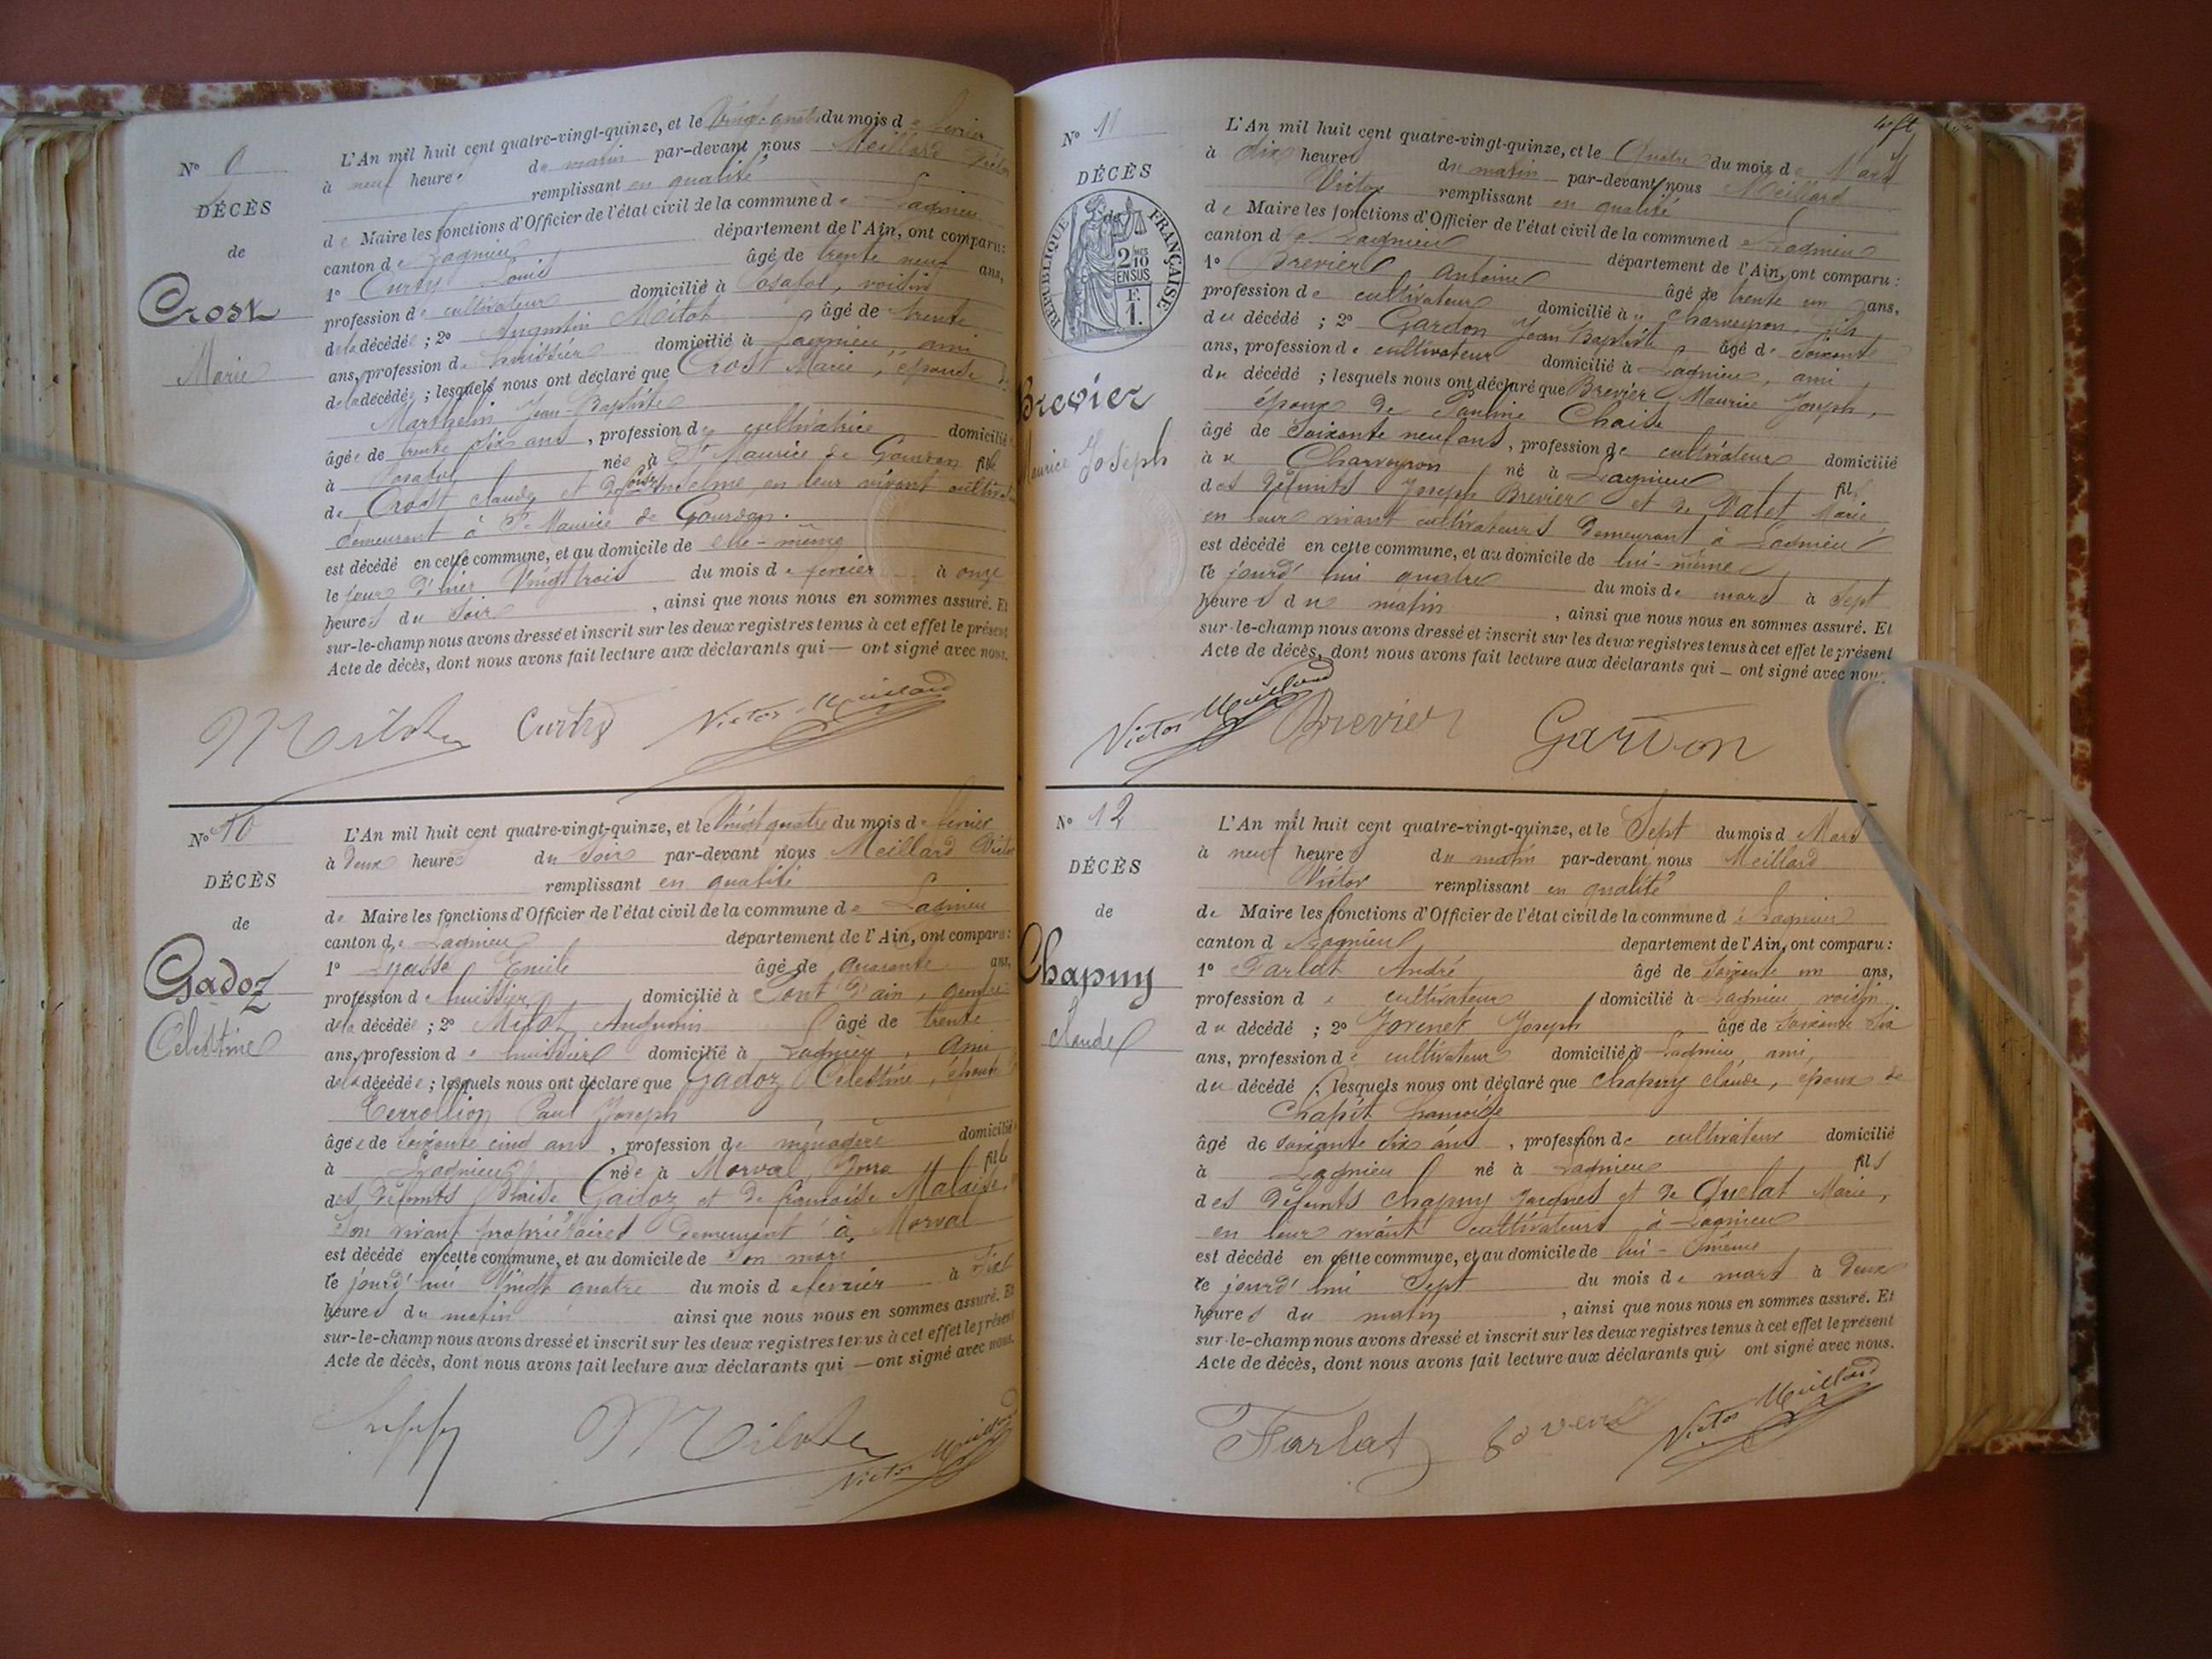 N° 9
DÉCÈS
de
Crost
Marie
L'An mil huit cent quatre-vingt-quinze, et le Vingt quatre du mois de février
à neuf heures du matin par-devant nous Meillard Victor
remplissant en qualité
de Maire les fonctions d'Officier de l'état civil de la commune de Lagnieu
canton de Lagnieu département de l'Ain, ont comparu:
1° Curty Louis âgé de trente neuf ans,
profession de cultivateur domicilié à Posafol, voisin
de la décédée ; 2° Augustin Milot âgé de trente
ans, profession d'huissier domicilié à Lagnieu, ami
de la décédée ; lesquels nous ont déclaré que Crost Marie, épouse de
Marthelin Jean-Baptiste
âgée de trente six ans, profession de cultivatrice domicilié
à Posafol née à St Maurice de Gourdan fille
de Crost claude et de Anselme, en leur vivant
demeurant à St Maurice de Gourdan.
est décédé en cette commune, et au domicile de elle-même
le jour d'hier Vingt trois du mois de février à onze
heures du soir, ainsi que nous nous en sommes assuré. Et
sur-le-champ nous avons dressé et inscrit sur les deux registres tenus à cet effet le présent
Acte de décès, dont nous avons fait lecture aux déclarants qui — ont signé avec nous.
Milot Curty Victor Meillard
N° 10
DÉCÈS
de
Gadoz
Celestine
L'An mil huit cent quatre-vingt-quinze, et le Vingt quatre du mois de février
à deux heures du soir par-devant nous Meillard Victor
remplissant en qualité
de Maire les fonctions d'Officier de l'état civil de la commune de Lagnieu
canton de Lagnieu département de l'Ain, ont comparu:
1° Emile âgé de quarante ans,
profession d'huissier domicilié à Pont d'ain, gendre
de la décédée ; 2° Milot Augustin âgé de trente
ans, profession d'huissier domicilié à Lagnieu, ami
de la décédée ; lesquels nous ont déclaré que Gadoz Celestine, épouse
Perrollion Paul Joseph
âgée de soixante cinq ans, profession de ménagère domicilié
à Lagnieu née à Morval, Jura fille
des défunts Blaise Gadoz et de françoise Malaise
son vivant propriétaires demeurant à Morval
est décédé en cette commune, et au domicile de son mari
le jourd'hui Vingt quatre du mois de février à Sept
heures du matin ainsi que nous nous en sommes assuré. Et
sur-le-champ nous avons dressé et inscrit sur les deux registres tenus à cet effet le présent
Acte de décès, dont nous avons fait lecture aux déclarants qui — ont signé avec nous.
Milot Victor Meillard
N° 11
DÉCÈS
de
RÉPUBLIQUE FRANÇAISE
2/10 EN SUS
F. 1.
Brevier
Maurice Joseph
L'An mil huit cent quatre-vingt-quinze, et le Quatre du mois de Mars
à dix heures du matin par-devant nous Meillard
Victor remplissant en qualité
de Maire les fonctions d'Officier de l'état civil de la commune de Lagnieu
canton de Lagnieu département de l'Ain, ont comparu:
1° Brevier Antoine âgé de trente un ans,
profession de cultivateur domicilié à Charveyron, fils
du décédé ; 2° Gardon Jean Baptiste, âgé de soixante
ans, profession de cultivateur domicilié à Lagnieu, ami
du décédé ; lesquels nous ont déclaré que Brevier Maurice Joseph,
époux de Pauline Chaise
âgé de soixante neuf ans, profession de cultivateur domicilié
à Charveyron né à Lagnieu fils
des défunts Joseph Brevier et de Valet Marie
en leur vivant cultivateurs demeurant à Lagnieu
est décédé en cette commune, et au domicile de lui-même
le jourd'hui quatre du mois de mars à sept
heures du matin, ainsi que nous nous en sommes assuré. Et
sur-le-champ nous avons dressé et inscrit sur les deux registres tenus à cet effet le présent
Acte de décès, dont nous avons fait lecture aux déclarants qui — ont signé avec nous.
Victor Meillard Brevier Gardon
N° 12
DÉCÈS
de
Chapuy
Claude
L'An mil huit cent quatre-vingt-quinze, et le Sept du mois de Mars
à neuf heures du matin par-devant nous Meillard
Victor remplissant en qualité
de Maire les fonctions d'Officier de l'état civil de la commune de Lagnieu
canton d Lagnieu département de l'Ain, ont comparu:
1° Farlat André âgé de soixante un ans,
profession de cultivateur domicilié à Lagnieu voisin
du décédé ; 2° Jovenet Joseph âgé de soixante six
ans, profession de cultivateur domicilié à Lagnieu, ami,
du décédé ; lesquels nous ont déclaré que Chapuy claude, époux de
Chapit françoise
âgé de soixante dix ans, profession de cultivateur domicilié
à Lagnieu né à Lagnieu fils
des défunts Chapuy Jacques et de Quelat Marie,
en leur vivant cultivateurs à Lagnieu
est décédé en cette commune, et au domicile de lui-même
le jourd'hui Sept du mois de mars à deux
heures du matin, ainsi que nous nous en sommes assuré. Et
sur-le-champ nous avons dressé et inscrit sur les deux registres tenus à cet effet le présent
Acte de décès, dont nous avons fait lecture aux déclarants qui ont signé avec nous.
Farlat Victor Meillard